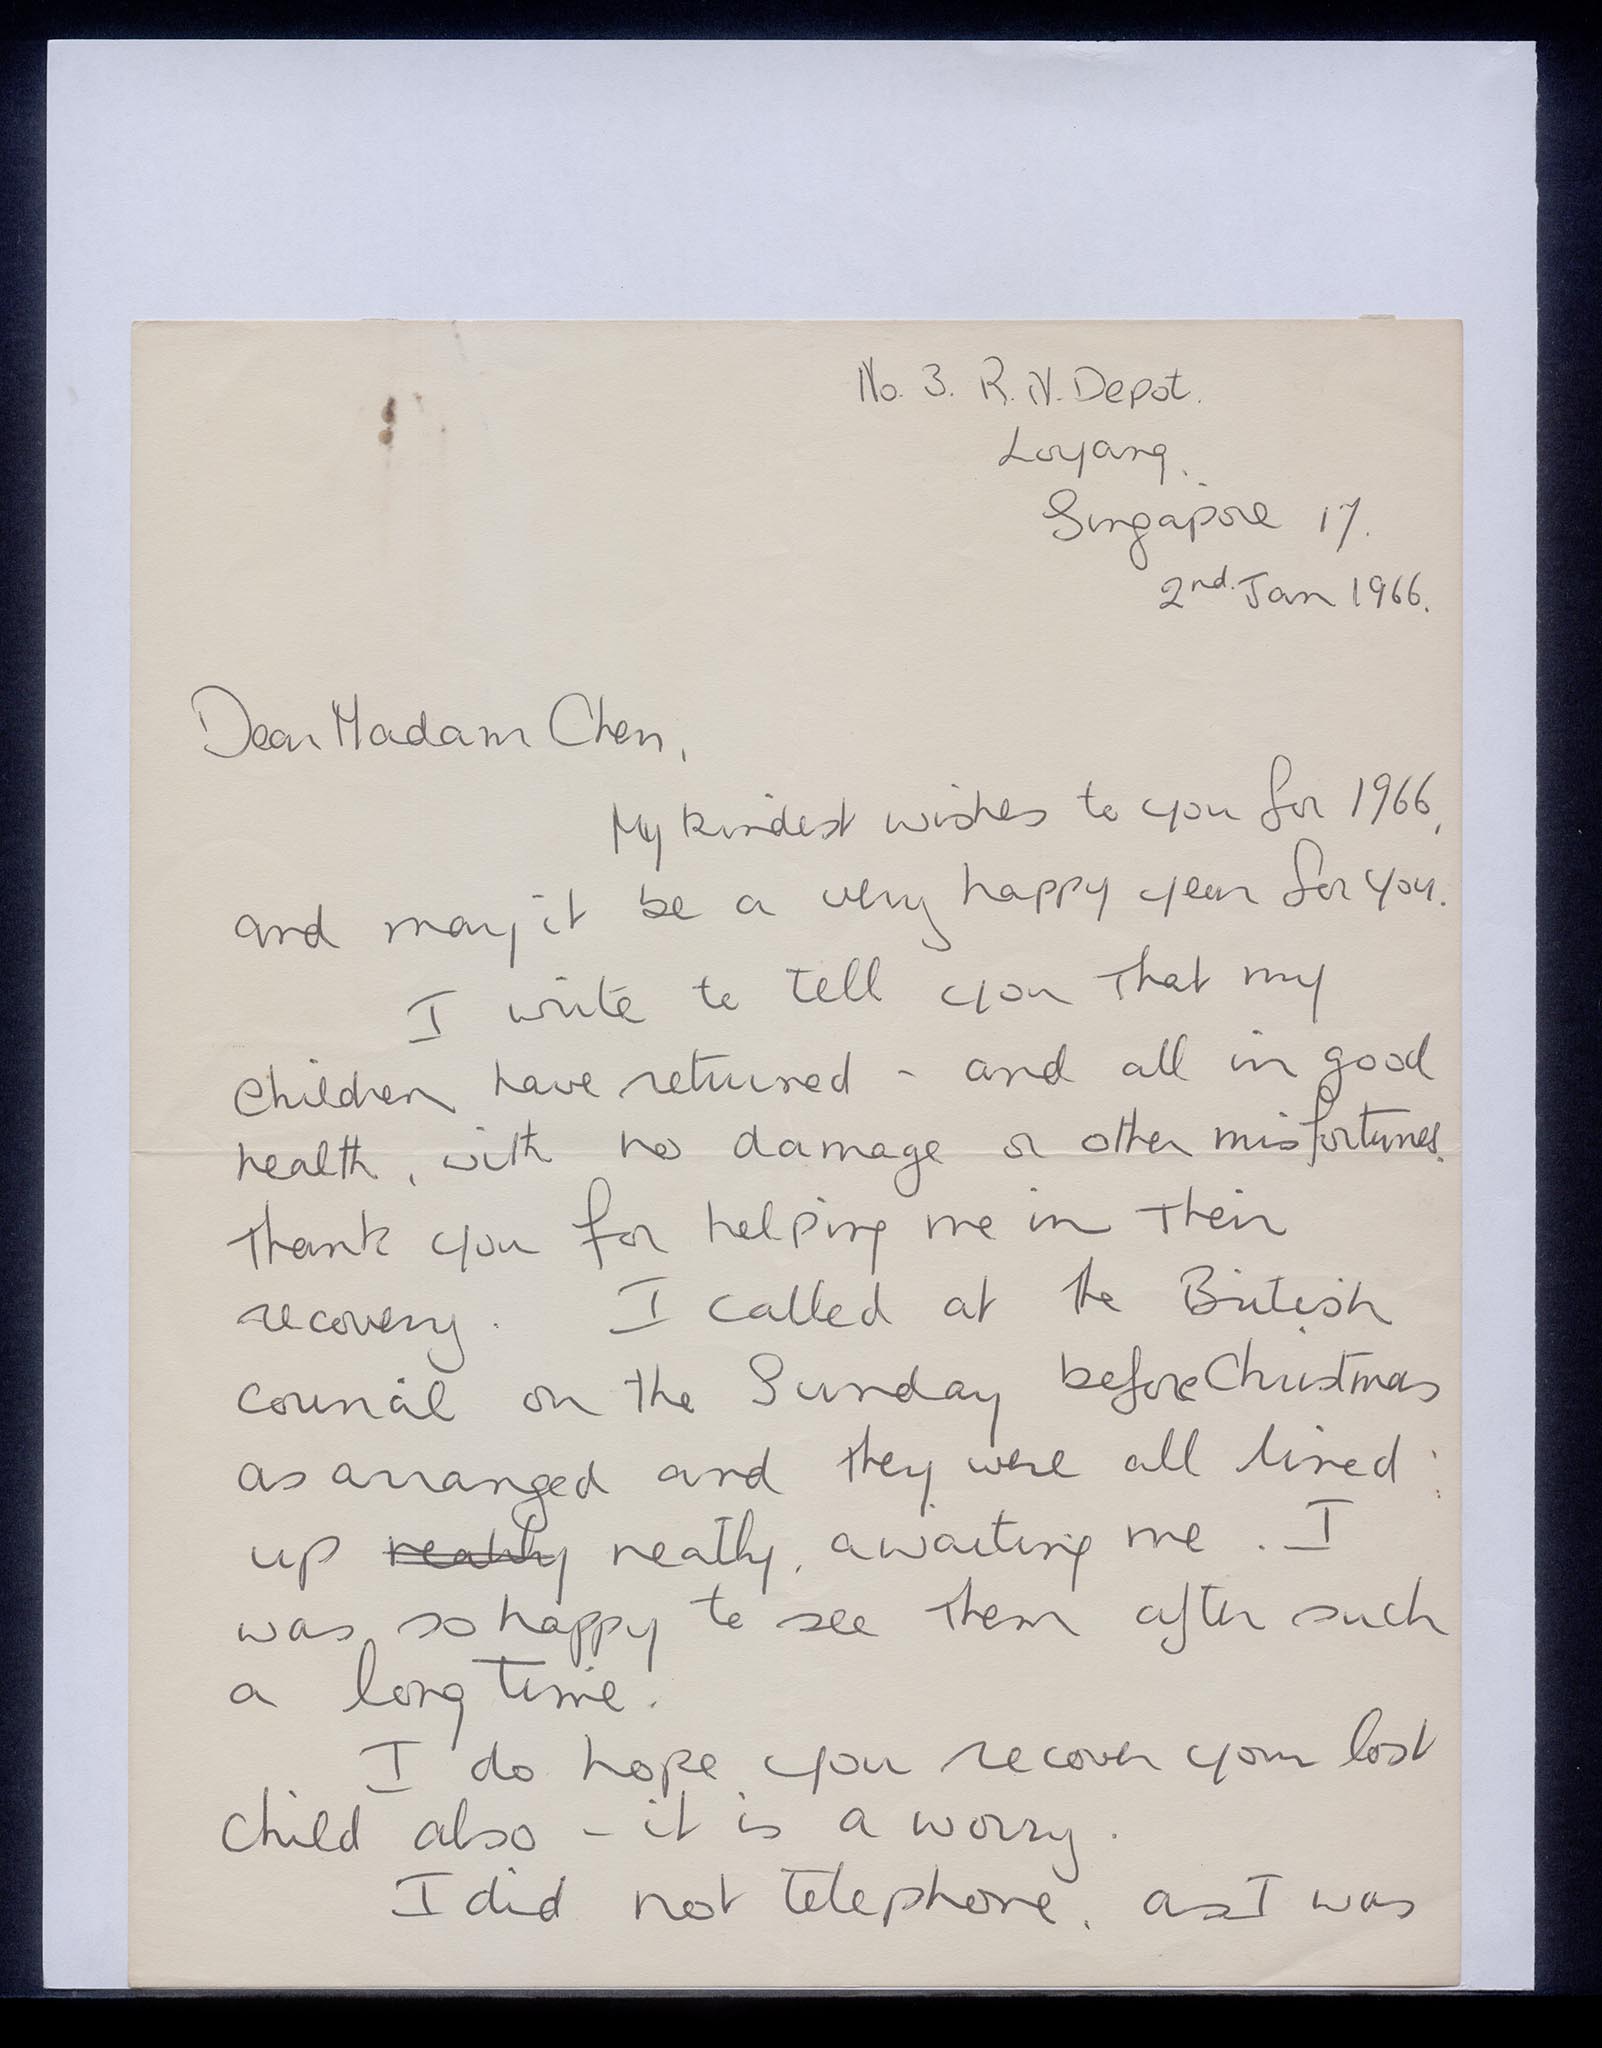 No. 3. R.N. Depot.
Loyang.
Singapore 17.
2nd. Jan 1966.
Dear Madam Chen,
My kindest wishes to you for 1966,
and may it be a very happy year for you.
I write to tell you that my
children have returned - and all in good
health, with no damage or other misfortunes.
Thank you for helping me in their
recovery. I called at the British
Council on the Sunday before Christmas
as arranged and they were all lined
up neatly, awaiting me. I
was so happy to see them after such
a long time.
I do hope you recover your lost
child also - it is a worry.
I did not telephone, as I was